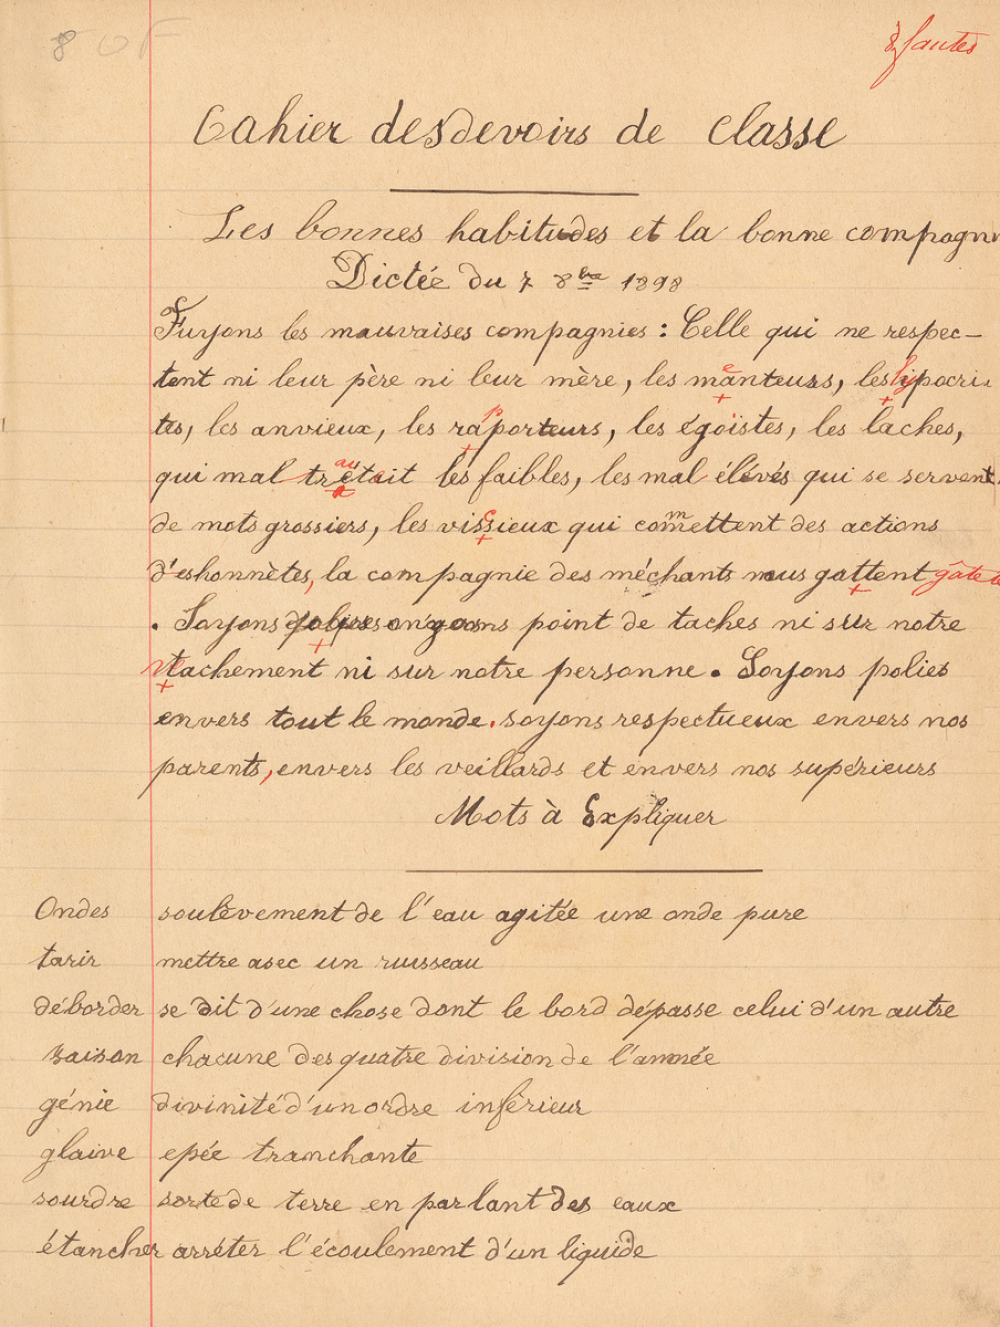 8
8 fautes
Cahier des devoirs de classe
Les bonnes habitudes et la bonne compagni
Dictée du 7 8bre 1898
Fuyons les mauvaises compagnies : Celle qui ne respec-
tent ni leur père ni leur mère, les manteurs, les hipocri
tes, les anvieux, les raporteurs, les égoïstes, les laches,
qui mal trétait les faibles, les mal élévés qui se servent
de mots grossiers, les vissieux qui commettent des actions
d'eshonnètes, la compagnie des méchants nous gattent gâte
. Soyons point de taches ni sur notre
vtachement ni sur notre personne. Soyons polies
envers tout le monde. soyons respectueux envers nos
parents, envers les veillards et envers nos supérieurs
Mots à Expliquer
Ondes soulèvement de l'eau agitée une onde pure
tarir mettre asec un ruisseau
déborder se dit d'une chose dont le bord dépasse celui d'un autre
saison chacune des quatre division de l'année
génie divinité d'un ordre inférieur
glaive epée tranchante
sourdre sorte de terre en parlant des eaux
étancher arréter l'écoulement d'un liquide